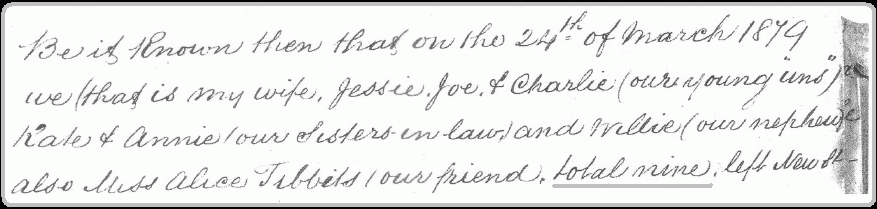 Be it Known then that on the 24th of March 1879
we (that is my wife, Jessie, Joe, & Charlie (our young "uns")
Kate & Annie (our Sisters-in-law) and Willie (our nephew)
also Miss Alice Tibbits (our friend, total nine, left New St-